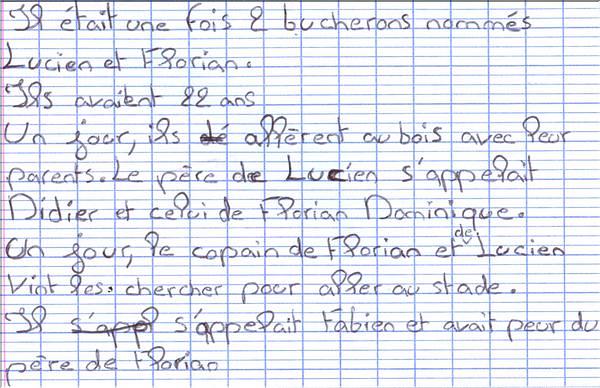 Il était une fois 2 bucherons nommés
Lucien et Florian.
Ils avaient 22 ans
Un jour, ils allèrent au bois avec leur
parents. Le père de Lucien s'appelait
Didier et celui de Florian Dominique.
Un jour, le copain de Florian et de Lucien
vint les. chercher pour aller au stade.
Il s'appel s'appelait Fabien et avait peur du
père de Florian